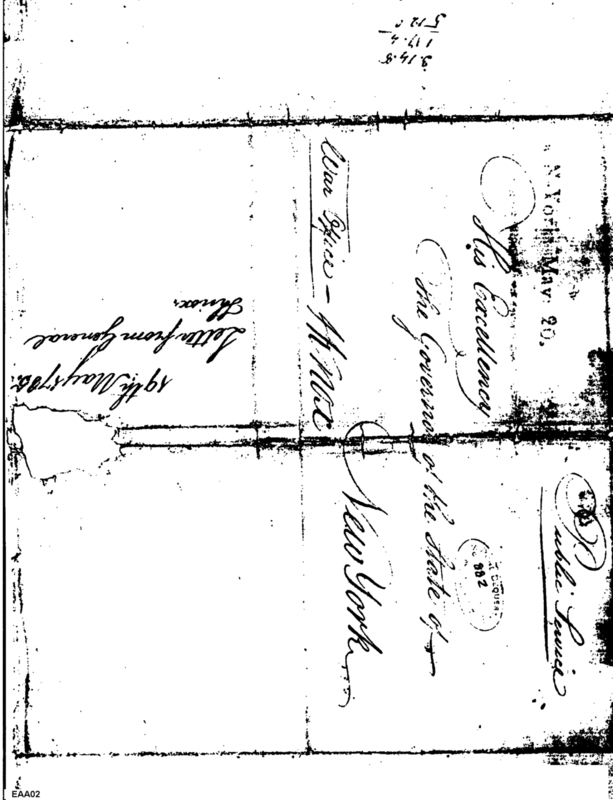 Public Service
N. York May 20.
His Excellency
The Governor of the State of
New York
War Office -
19th May 178
Letter from General
882
3.14.8
1 17.4
5 12 0
EAA02